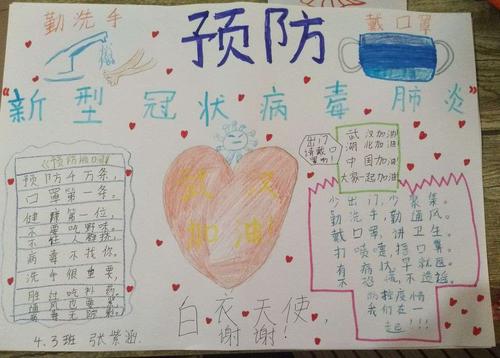 勤洗手
预防
戴口罩
“新型冠状病毒肺炎”
预防千万条,
口罩第一条。
健康第一位,
不要吃野味。
病毒不找你。
洗手很重要,
胜过吃补药。
武汉
加油!
出门
请戴口
罩!
武汉加油
湖北加油
中国加油
大家一起加油
少出门,少聚集。
勤洗手,勤通风。
戴口罩,讲卫生。
打喷嚏,捂口鼻。
有病状,早就医。
不恐慌,不造谣。
防控疫情
我们在一
起!!!
白衣天使,
谢谢!
4.3班 张紫涵